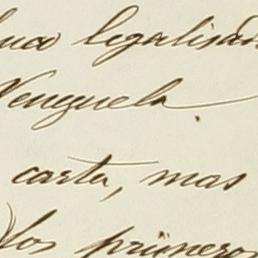 legalisad
Venezuela.
carta, mas
los primeros